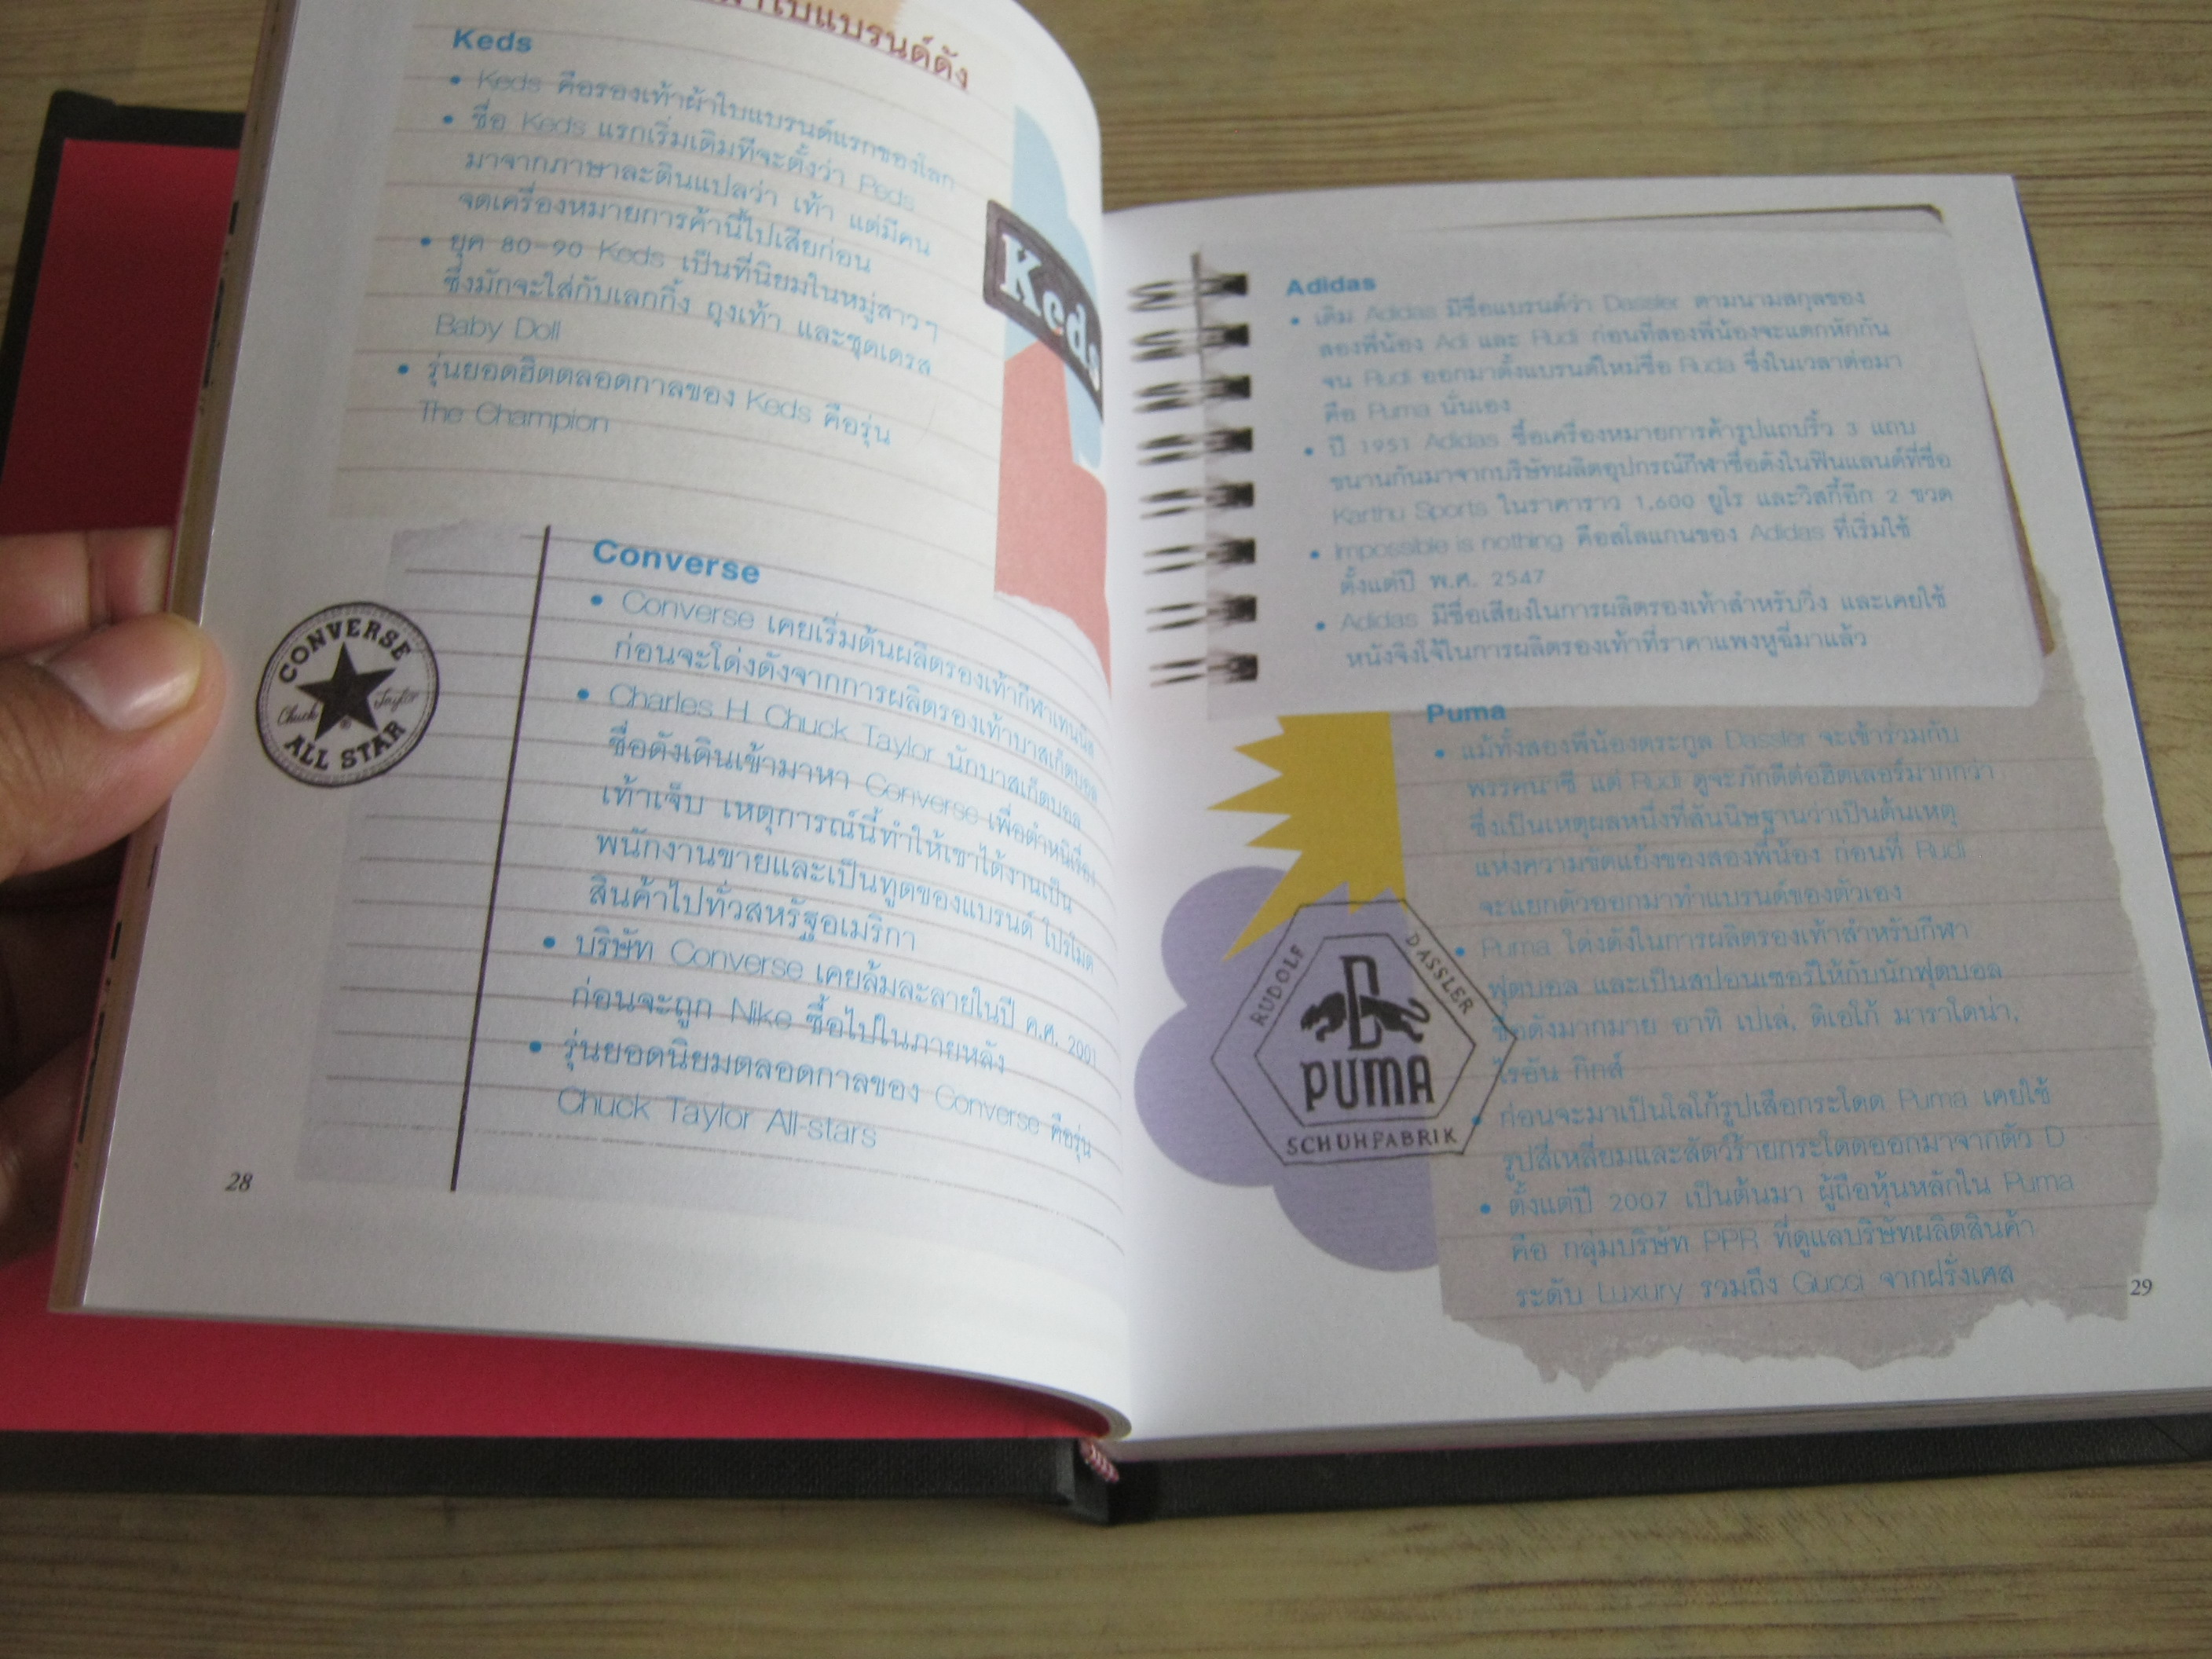 ผ้าใบแบรนด์ดัง
Keds
• Keds คือรองเท้าผ้าใบแบรนด์แรกของโลก
• ชื่อ Keds แรกเริ่มเดิมทีจะตั้งว่า Peds
มาจากภาษาละตินแปลว่า เท้า แต่มีคน
จดเครื่องหมายการค้านี้ไปเสียก่อน
• ยุค 80-90 Keds เป็นที่นิยมในหมู่สาวๆ
ซึ่งมักจะใส่กับเลกกิ้ง ถุงเท้า และชุดเดรส
Baby Doll
• รุ่นยอดฮิตตลอดกาลของ Keds คือรุ่น
The Champion
Keds
CONVERSE
Chuck Taylor
®
ALL STAR
Converse
• Converse เคยเริ่มต้นผลิตรองเท้ากีฬาเทนนิส
ก่อนจะโด่งดังจากการผลิตรองเท้าบาสเก็ตบอล
• Charles H. Chuck Taylor นักบาสเก็ตบอล
ชื่อดังเดินเข้ามาหา Converse เพื่อตำหนิเรื่อง
เท้าเจ็บ เหตุการณ์นี้ทำให้เขาได้งานเป็น
พนักงานขายและเป็นทูตของแบรนด์ โปรโมต
สินค้าไปทั่วสหรัฐอเมริกา
• บริษัท Converse เคยล้มละลายในปี ค.ศ. 2001
ก่อนจะถูก Nike ซื้อไปในภายหลัง
• รุ่นยอดนิยมตลอดกาลของ Converse คือรุ่น
Chuck Taylor All-stars
28
Adidas
• เดิม Adidas มีชื่อแบรนด์ว่า Dassler ตามนามสกุลของ
สองพี่น้อง Adi และ Rudi ก่อนที่สองพี่น้องจะแตกหักกัน
จน Rudi ออกมาตั้งแบรนด์ใหม่ชื่อ Ruda ซึ่งในเวลาต่อมา
คือ Puma นั่นเอง
• ปี 1951 Adidas ซื้อเครื่องหมายการค้ารูปแถบริ้ว 3 แถบ
ขนานกันมาจากบริษัทผลิตอุปกรณ์กีฬาชื่อดังในฟินแลนด์ที่ชื่อ
Karthu Sports ในราคาราว 1,600 ยูโร และวิสกี้อีก 2 ขวด
• Impossible is nothing คือสโลแกนของ Adidas ที่เริ่มใช้
ตั้งแต่ปี พ.ศ. 2547
• Adidas มีชื่อเสียงในการผลิตรองเท้าสำหรับวิ่ง และเคยใช้
หนังจิงโจ้ในการผลิตรองเท้าที่ราคาแพงหูฉี่มาแล้ว
Puma
• แม้ทั้งสองพี่น้องตระกูล Dassler จะเข้าร่วมกับ
พรรคนาซี แต่ Rudi ดูจะภักดีต่อฮิตเลอร์มากกว่า
ซึ่งเป็นเหตุผลหนึ่งที่สันนิษฐานว่าเป็นต้นเหตุ
แห่งความขัดแย้งของสองพี่น้อง ก่อนที่ Rudi
จะแยกตัวออกมาทำแบรนด์ของตัวเอง
• Puma โด่งดังในการผลิตรองเท้าสำหรับกีฬา
ฟุตบอล และเป็นสปอนเซอร์ให้กับนักฟุตบอล
ชื่อดังมากมาย อาทิ เปเล่, ดิเอโก้ มาราโดน่า,
ไรอัน กิกส์
• ก่อนจะมาเป็นโลโก้รูปเสือกระโดด Puma เคยใช้
รูปสี่เหลี่ยมและสัตว์ร้ายกระโดดออกมาจากตัว D
• ตั้งแต่ปี 2007 เป็นต้นมา ผู้ถือหุ้นหลักใน Puma
คือ กลุ่มบริษัท PPR ที่ดูแลบริษัทผลิตสินค้า
ระดับ Luxury รวมถึง Gucci จากฝรั่งเศส
RUDOLF DASSLER
D
PUMA
SCHUHFABRIK
29